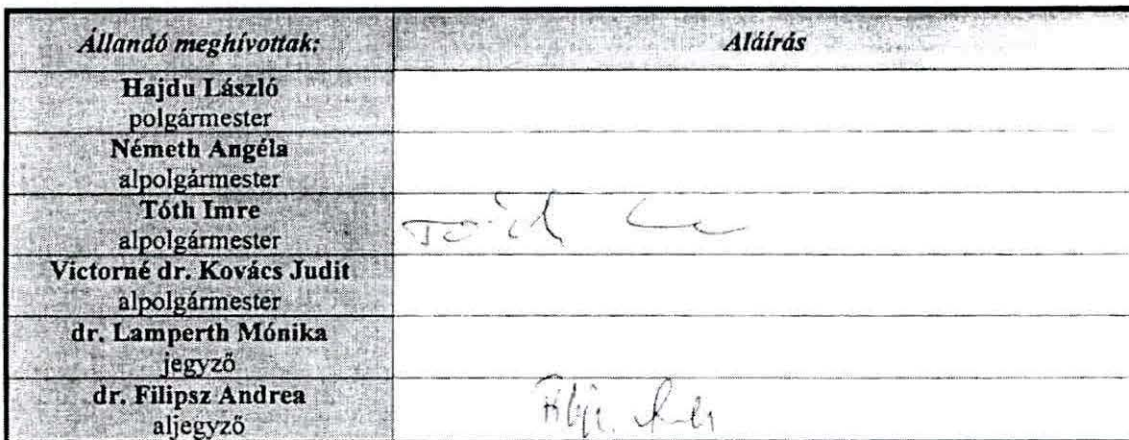 Állandó meghívottak: Aláírás
Hajdu László
polgármester
Németh Angéla
alpolgármester
Tóth Imre
alpolgármester
Tóth
Victorné dr. Kovács Judit
alpolgármester
dr. Lamperth Mónika
jegyző
dr. Filipsz Andrea
aljegyző